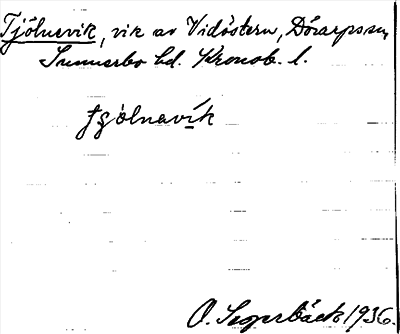 Tjölnevik, vik av Vidöstern, Dörarps sn,
Sunnerbo hd. Kronob. l.
tjölnavík
O. Segerbäck 1936.